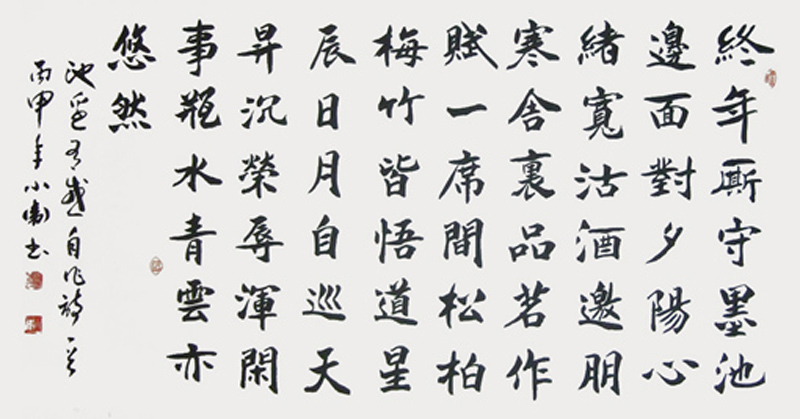 終年厮守墨池
邊面對夕陽心
緒寬沽酒邀朋
寒舍裏品茗作
賦一席間松柏
梅竹皆悟道星
辰日月自巡天
昇沉榮辱渾閑
事瓶水青雲亦
悠然
池邊有感自作詩一首
丙申年小衛书